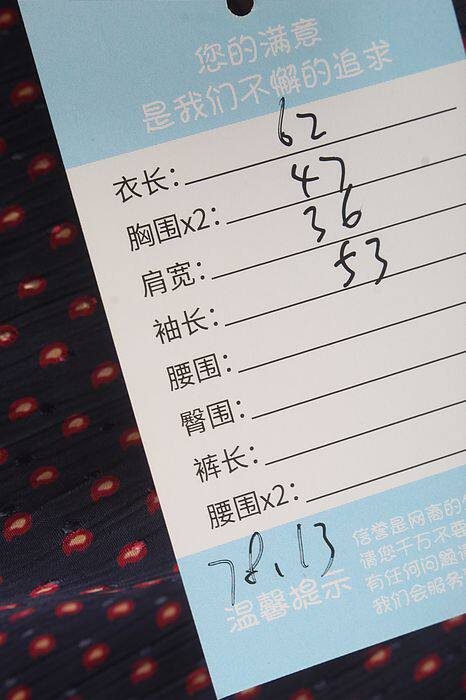 您的满意
是我们不懈的追求
衣长: 62
胸围x2: 47
肩宽: 36
袖长: 53
腰围:
臀围:
裤长:
腰围x2:
78.13
温馨提示
信誉是网商的
请您千万不要
有任何问题
我们会服务